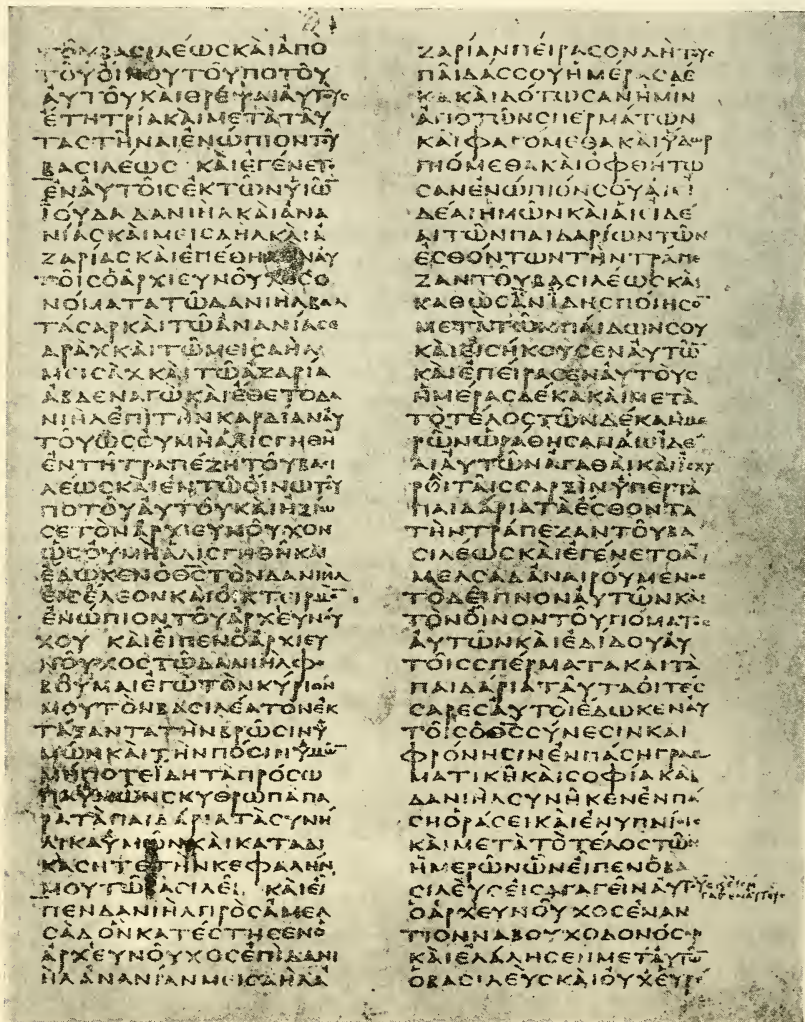 ΤΟΥΒΑCΙΛΕΩCΚΑΙΑΠΟ
ΤΟΥΟΙΝΟΥΤΟΥΠΟΤΟΥ
ΑΥΤΟΥΚΑΙΘΡΕΨΑΙΑΥΤΟΥC
ΕΤΗΤΡΙΑΚΑΙΜΕΤΑΤΑΥ
ΤΑCΤΗΝΑΙΕΝΩΠΙΟΝΤΟΥ
ΒΑCΙΛΕΩC ΚΑΙΕΓΕΝΕΤΟ
ΕΝΑΥΤΟΙCΕΚΤΩΝΥΙΩ̅
ΙΟΥΔΑΔΑΝΙΗΛΚΑΙΑΝΑ
ΝΙΑCΚΑΙΜΕΙCΑΗΛΚΑΙΑ
ΖΑΡΙΑCΚΑΙΕΠΕΘΗΚΕΝΑΥ
ΤΟΙCΟΑΡΧΙΕΥΝΟΥΧΟCΟ
ΝΟΜΑΤΑΤΩΔΑΝΙΗΛΒΑΛ
ΤΑCΑΡΚΑΙΤΩΑΝΑΝΙΑCΕ
ΔΡΑΧΚΑΙΤΩΜΕΙCΑΗΛ
ΜΕΙCΑΧΚΑΙΤΩΑΖΑΡΙΑ
ΑΒΔΕΝΑΓΩΚΑΙΕΘΕΤΟΔΑ
ΝΙΗΛΕΠΙΤΗΝΚΑΡΔΙΑΝΑΥ
ΤΟΥΩCΟΥΜΗΑΛΙCΓΗΘΗ
ΕΝΤΗΤΡΑΠΕΖΗΤΟΥΒΑCΙ
ΛΕΩCΚΑΙΕΝΤΩΟΙΝΩΤΟΥ
ΠΟΤΟΥΑΥΤΟΥΚΑΙΗΞΙΩ
CΕΤΟΝΑΡΧΙΕΥΝΟΥΧΟΝ
ΩCΟΥΜΗΑΛΙCΓΗΘΗΚΑΙ
ΕΔΩΚΕΝΟΘ̅C̅ΤΟΝΔΑΝΙΗΛ
ΕΙCΕΛΕΟΝΚΑΙΟΙΚΤΕΙΡΜΟ̅
ΕΝΩΠΙΟΝΤΟΥΑΡΧΕΥΝΟΥ
ΧΟΥ ΚΑΙΕΙΠΕΝΟΑΡΧΙΕΥ
ΝΟΥΧΟCΤΩΔΑΝΙΗΛΦΟ
ΒΟΥΜΑΙΕΓΩΤΟΝΚΥΡΙΟΝ
ΜΟΥΤΟΝΒΑCΙΛΕΑΤΟΝΕΚ
ΤΑΞΑΝΤΑΤΗΝΒΡΩCΙΝΥ
ΜΩΝΚΑΙΤΗΝΠΟCΙΝΥΜΩ̅
ΜΗΠΟΤΕΙΔΗΤΑΠΡΟCΩ
ΠΑΥΜΩΝCΚΥΘΡΩΠΑΠΑ
ΡΑΤΑΠΑΙΔΑΡΙΑΤΑCΥΝΗ
ΛΙΚΑΥΜΩΝΚΑΙΚΑΤΑΔΙ
ΚΑCΗΤΕΤΗΝΚΕΦΑΛΗΝ
ΜΟΥΤΩΒΑCΙΛΕΙ ΚΑΙΕΙ
ΠΕΝΔΑΝΙΗΛΠΡΟCΑΜΕΛ
CΑΔΟΝΚΑΤΕCΤΗCΕΝΟ
ΑΡΧΕΥΝΟΥΧΟCΕΠΙΔΑΝΙ
ΗΛΑΝΑΝΙΑΝΜΕΙCΑΗΛΑ
ΖΑΡΙΑΝΠΕΙΡΑCΟΝΔΗΤΟΥC
ΠΑΙΔΑCCΟΥΗΜΕΡΑCΔΕ
ΚΑΚΑΙΔΟΤΩCΑΝΗΜΙΝ
ΑΠΟΤΩΝCΠΕΡΜΑΤΩΝ
ΚΑΙΦΑΓΟΜΕΘΑΚΑΙΥΔΩΡ
ΠΙΟΜΕΘΑΚΑΙΟΦΘΗΤΩ
CΑΝΕΝΩΠΙΟΝCΟΥΑΙΕΙ
ΔΕΑΙΗΜΩΝΚΑΙΑΙΕΙΔΕ
ΑΙΤΩΝΠΑΙΔΑΡΙΩΝΤΩΝ
ΕCΘΟΝΤΩΝΤΗΝΤΡΑΠΕ
ΖΑΝΤΟΥΒΑCΙΛΕΩCΚΑΙ
ΚΑΘΩCΑΝΙΔΗCΠΟΙΗCΟ̅
ΜΕΤΑΤΩΝΠΑΙΔΩΝCΟΥ
ΚΑΙΕΙCΗΚΟΥCΕΝΑΥΤΩ̅
ΚΑΙΕΠΕΙΡΑCΕΝΑΥΤΟΥC
ΗΜΕΡΑCΔΕΚΑΚΑΙΜΕΤΑ
ΤΟΤΕΛΟCΤΩΝΔΕΚΑΗΜΕ
ΡΩΝΩΡΑΘΗCΑΝΑΙΕΙΔΕ
ΑΙΑΥΤΩΝΑΓΑΘΑΙΚΑΙΙCΧΥ
ΡΟΙΤΑΙCCΑΡΞΙΝΥΠΕΡΤΑ
ΠΑΙΔΑΡΙΑΤΑΕCΘΟΝΤΑ
ΤΗΝΤΡΑΠΕΖΑΝΤΟΥΒΑ
CΙΛΕΩCΚΑΙΕΓΕΝΕΤΟΑ
ΜΕΛCΑΔΑΝΑΙΡΟΥΜΕΝΟC
ΤΟΔΕΙΠΝΟΝΑΥΤΩΝΚΑΙ
ΤΟΝΟΙΝΟΝΤΟΥΠΟΜΑΤΟC
ΑΥΤΩΝΚΑΙΕΔΙΔΟΥΑΥ
ΤΟΙCCΠΕΡΜΑΤΑΚΑΙΤΑ
ΠΑΙΔΑΡΙΑΤΑΥΤΑΟΙΤΕC
CΑΡΕCΑΥΤΟΙΕΔΩΚΕΝΑΥ
ΤΟΙCΟΘ̅C̅CΥΝΕCΙΝΚΑΙ
ΦΡΟΝΗCΙΝΕΝΠΑCΗΓΡΑΜ
ΜΑΤΙΚΗΚΑΙCΟΦΙΑΚΑΙ
ΔΑΝΙΗΛCΥΝΗΚΕΝΕΝΠΑ
CΗΟΡΑCΕΙΚΑΙΕΝΥΠΝΙΟΙC
ΚΑΙΜΕΤΑΤΟΤΕΛΟCΤΩ̅
ΗΜΕΡΩΝΩΝΕΙΠΕΝΟΒΑ
CΙΛΕΥCΕΙCΑΓΑΓΕΙΝΑΥΤΟΥC
ΟΑΡΧΕΥΝΟΥΧΟCΕΝΑΝ
ΤΙΟΝΝΑΒΟΥΧΟΔΟΝΟCΟΡ
ΚΑΙΕΛΑΛΗCΕΝΜΕΤΑΥΤΩ̅
ΟΒΑCΙΛΕΥCΚΑΙΟΥΧΕΥΡΕ